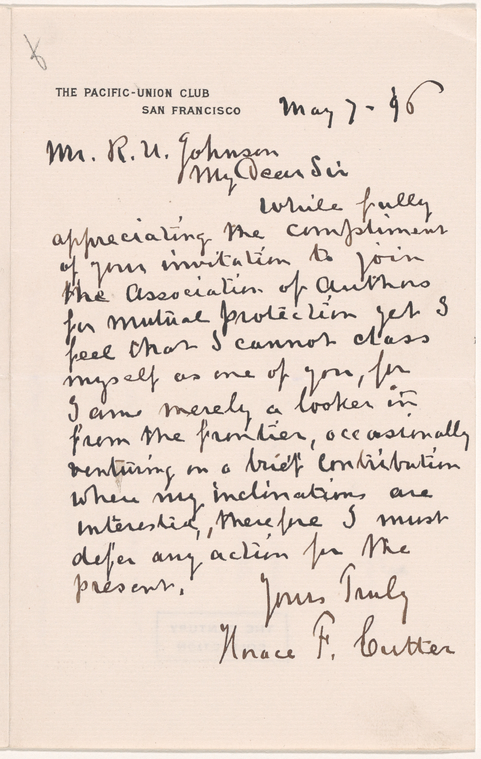 THE PACIFIC-UNION CLUB
SAN FRANCISCO
May 7 - 96
Mr. R. U. Johnson
My Dear Sir
While fully
appreciating the compliment
of your invitation to join
the Association of Authors
for mutual protection yet I
feel that I cannot class
myself as one of you, for
I am merely a looker in
from the frontier, occasionally
venturing on a brief contribution
when my inclinations are
interested, therefore I must
defer any action for the
present.
Yours Truly
Horace F. Cutter